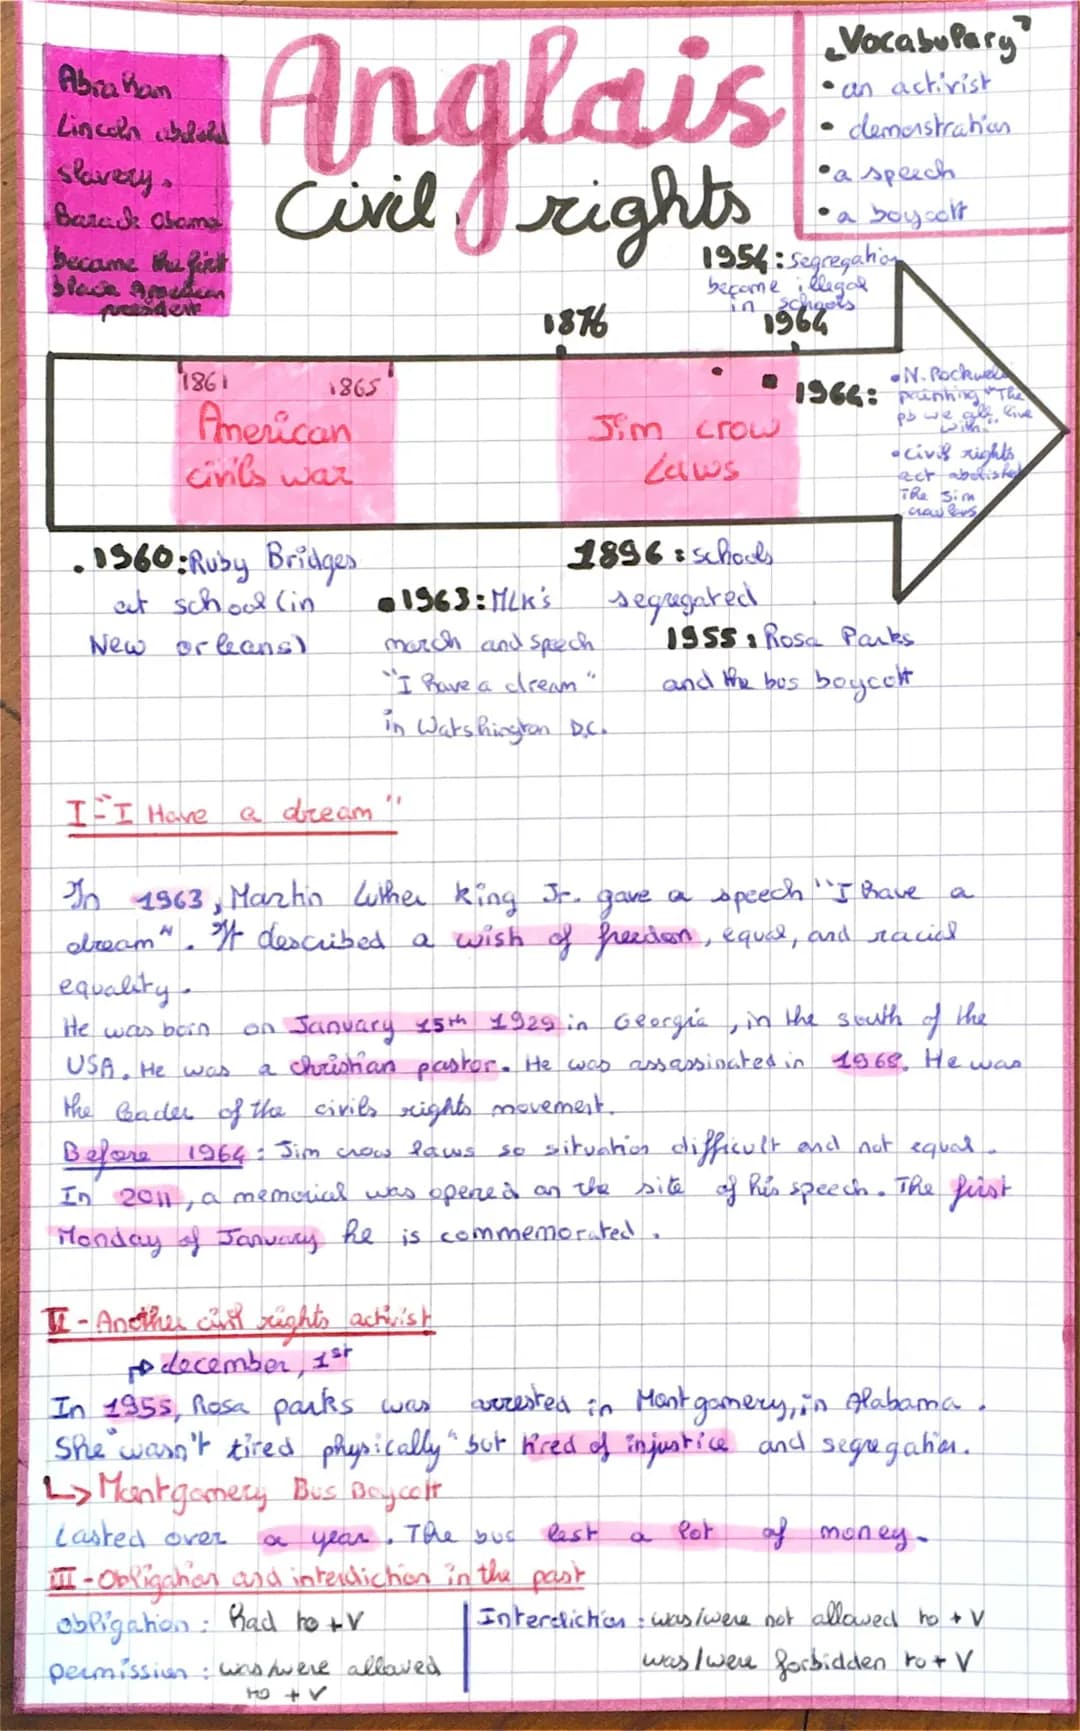 Anglais
Civil rights
Abraham
Lincoln abolohd
slavery.
Barack Obama
became the first
black American
president
"Vocabulary"
• an activist
• demonstration
• a speech
• a boycott
1954: segregation
become illegal
in schools
1876
1964
1861
1865
American
civils war
Jim crow
Laws
1964:
• N. Rockwell
painting "The
pb we all live
with."
• Civil rights
act abolished
The Jim
craw laws
• 1960: Ruby Bridges
at school (in
New orleans)
• 1963: MLK's
march and speech
"I have a dream"
in Watshington D.C.
1896: schools
segregated
1955: Rosa Parks
and the bus boycott
I - "I Have a dream"
In 1963, Martin Luther king Jr. gave a speech "I have a
dream". It described a wish of freedon, equal, and racial
equality.
He was born on January 15th 1929 in Georgia, in the south of the
USA. He was a christian pastor. He was assassinated in 1968. He was
the leader of the civils rights movement.
Before 1964: Jim crow laws so situation difficult and not equal.
In 2011, a memorial was opened on the site of his speech. The first
Monday of January he is commemorated.
II - Another civil rights activist
december, 1st
In 1955, Rosa parks was arrested in Montgomery, in Alabama.
She "wasn't tired physically" but tired of injustice and segregation.
↳ Montgomery Bus Boycott
Lasted over a year. The bus lost a lot of money.
III - Obligation and interdiction in the past
obligation: had to + V
permission: was/were allowed
to + V
Interdiction: was/were not allowed to + V
was/were forbidden to + V